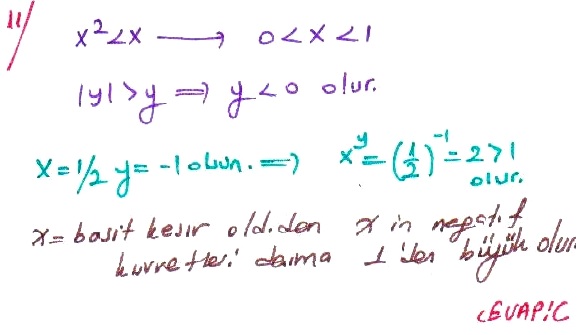 11/
x² < x ⟶ 0 < x < 1
|y| > y ⟹ y < 0 olur.
x = 1/2 y = -1 olsun. ⟹ x^y = (1/2)^-1 = 2 > 1
olur.
x = basit kesir old.dan x in negatif
kuvvetleri daima 1 'den büyük olur.
CEVAP: C